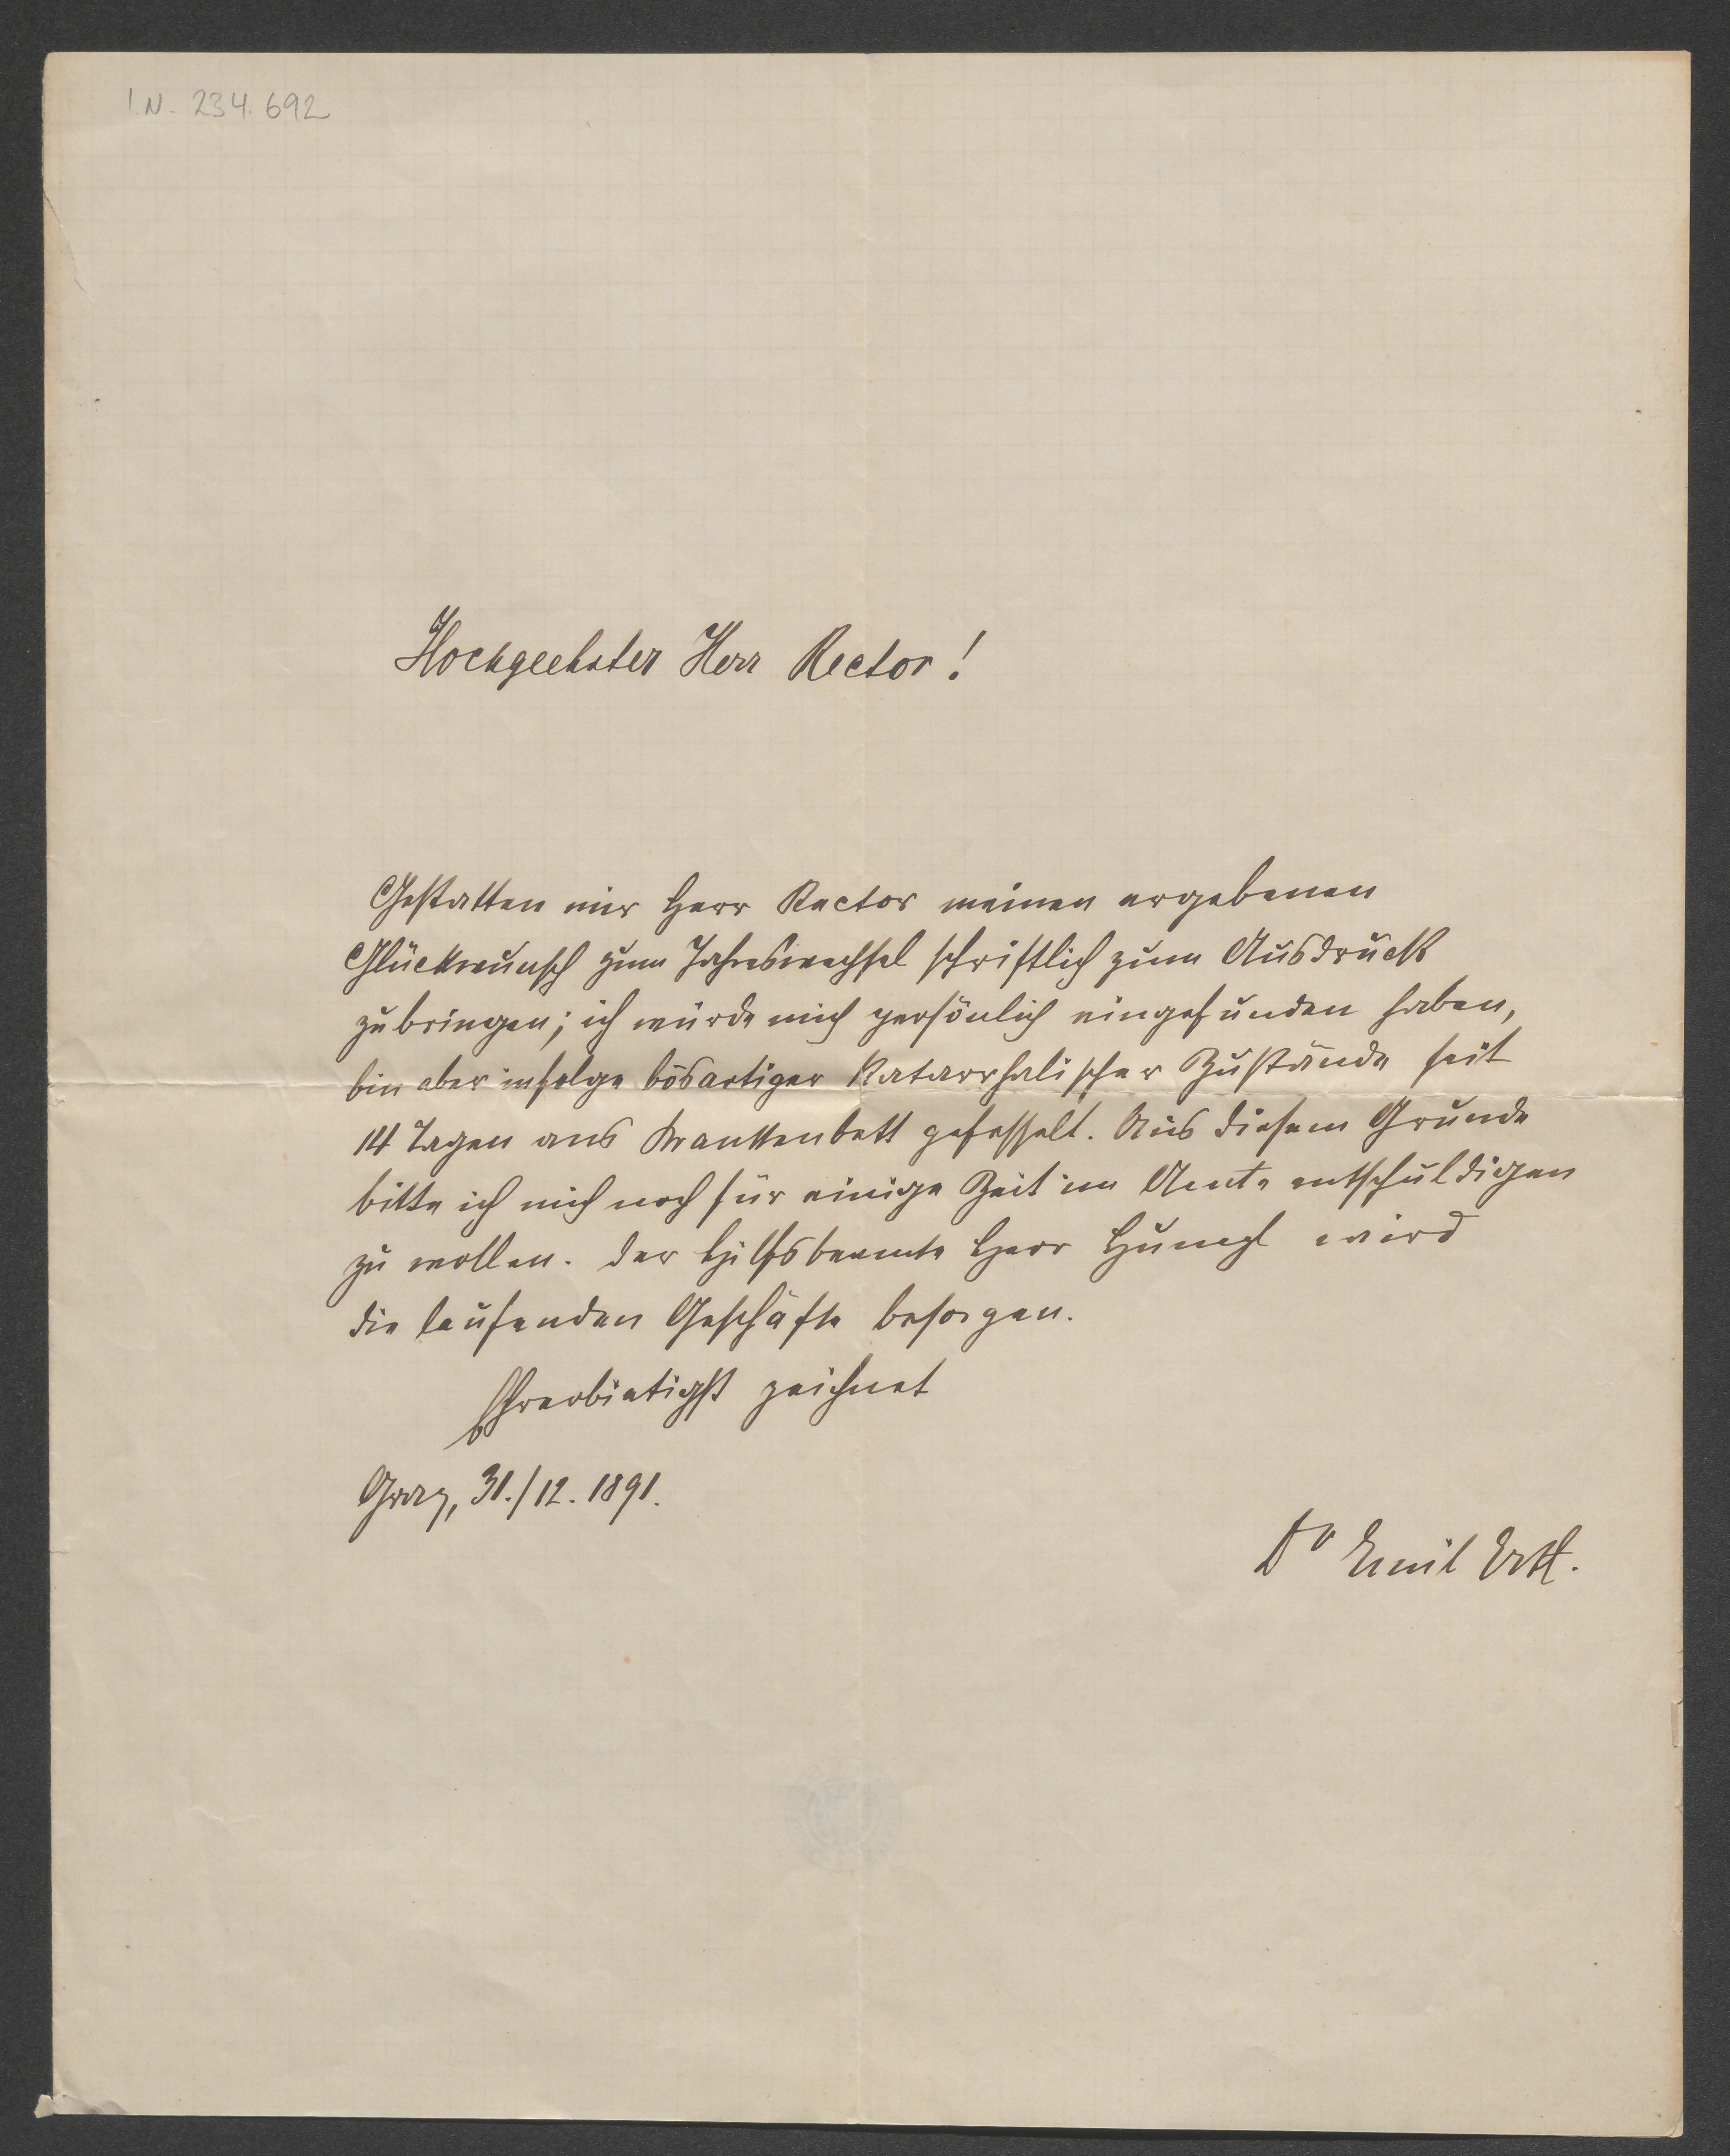 I.N. 234.692
Hochgeehrter Herr Rector!
Gestatten mir Herr Rector meinen ergebenen
Glückwunsch zum Jahreswechsel schriftlich zum Ausdruck
zu bringen; ich würde mich persönlich eingefunden haben,
bin aber infolge bösartiger katarrhalischer Zustände seit
14 Tagen ans Krankenbett gefesselt. Aus diesem Grunde
bitte ich mich noch für einige Zeit im Amte entschuldigen
zu wollen. Der Hilfsbeamte Herr wird
die laufenden Geschäfte besorgen.
Ehrerbietigst zeichnet
Graz, 31./12. 1891.
Dr Emil Ertl.